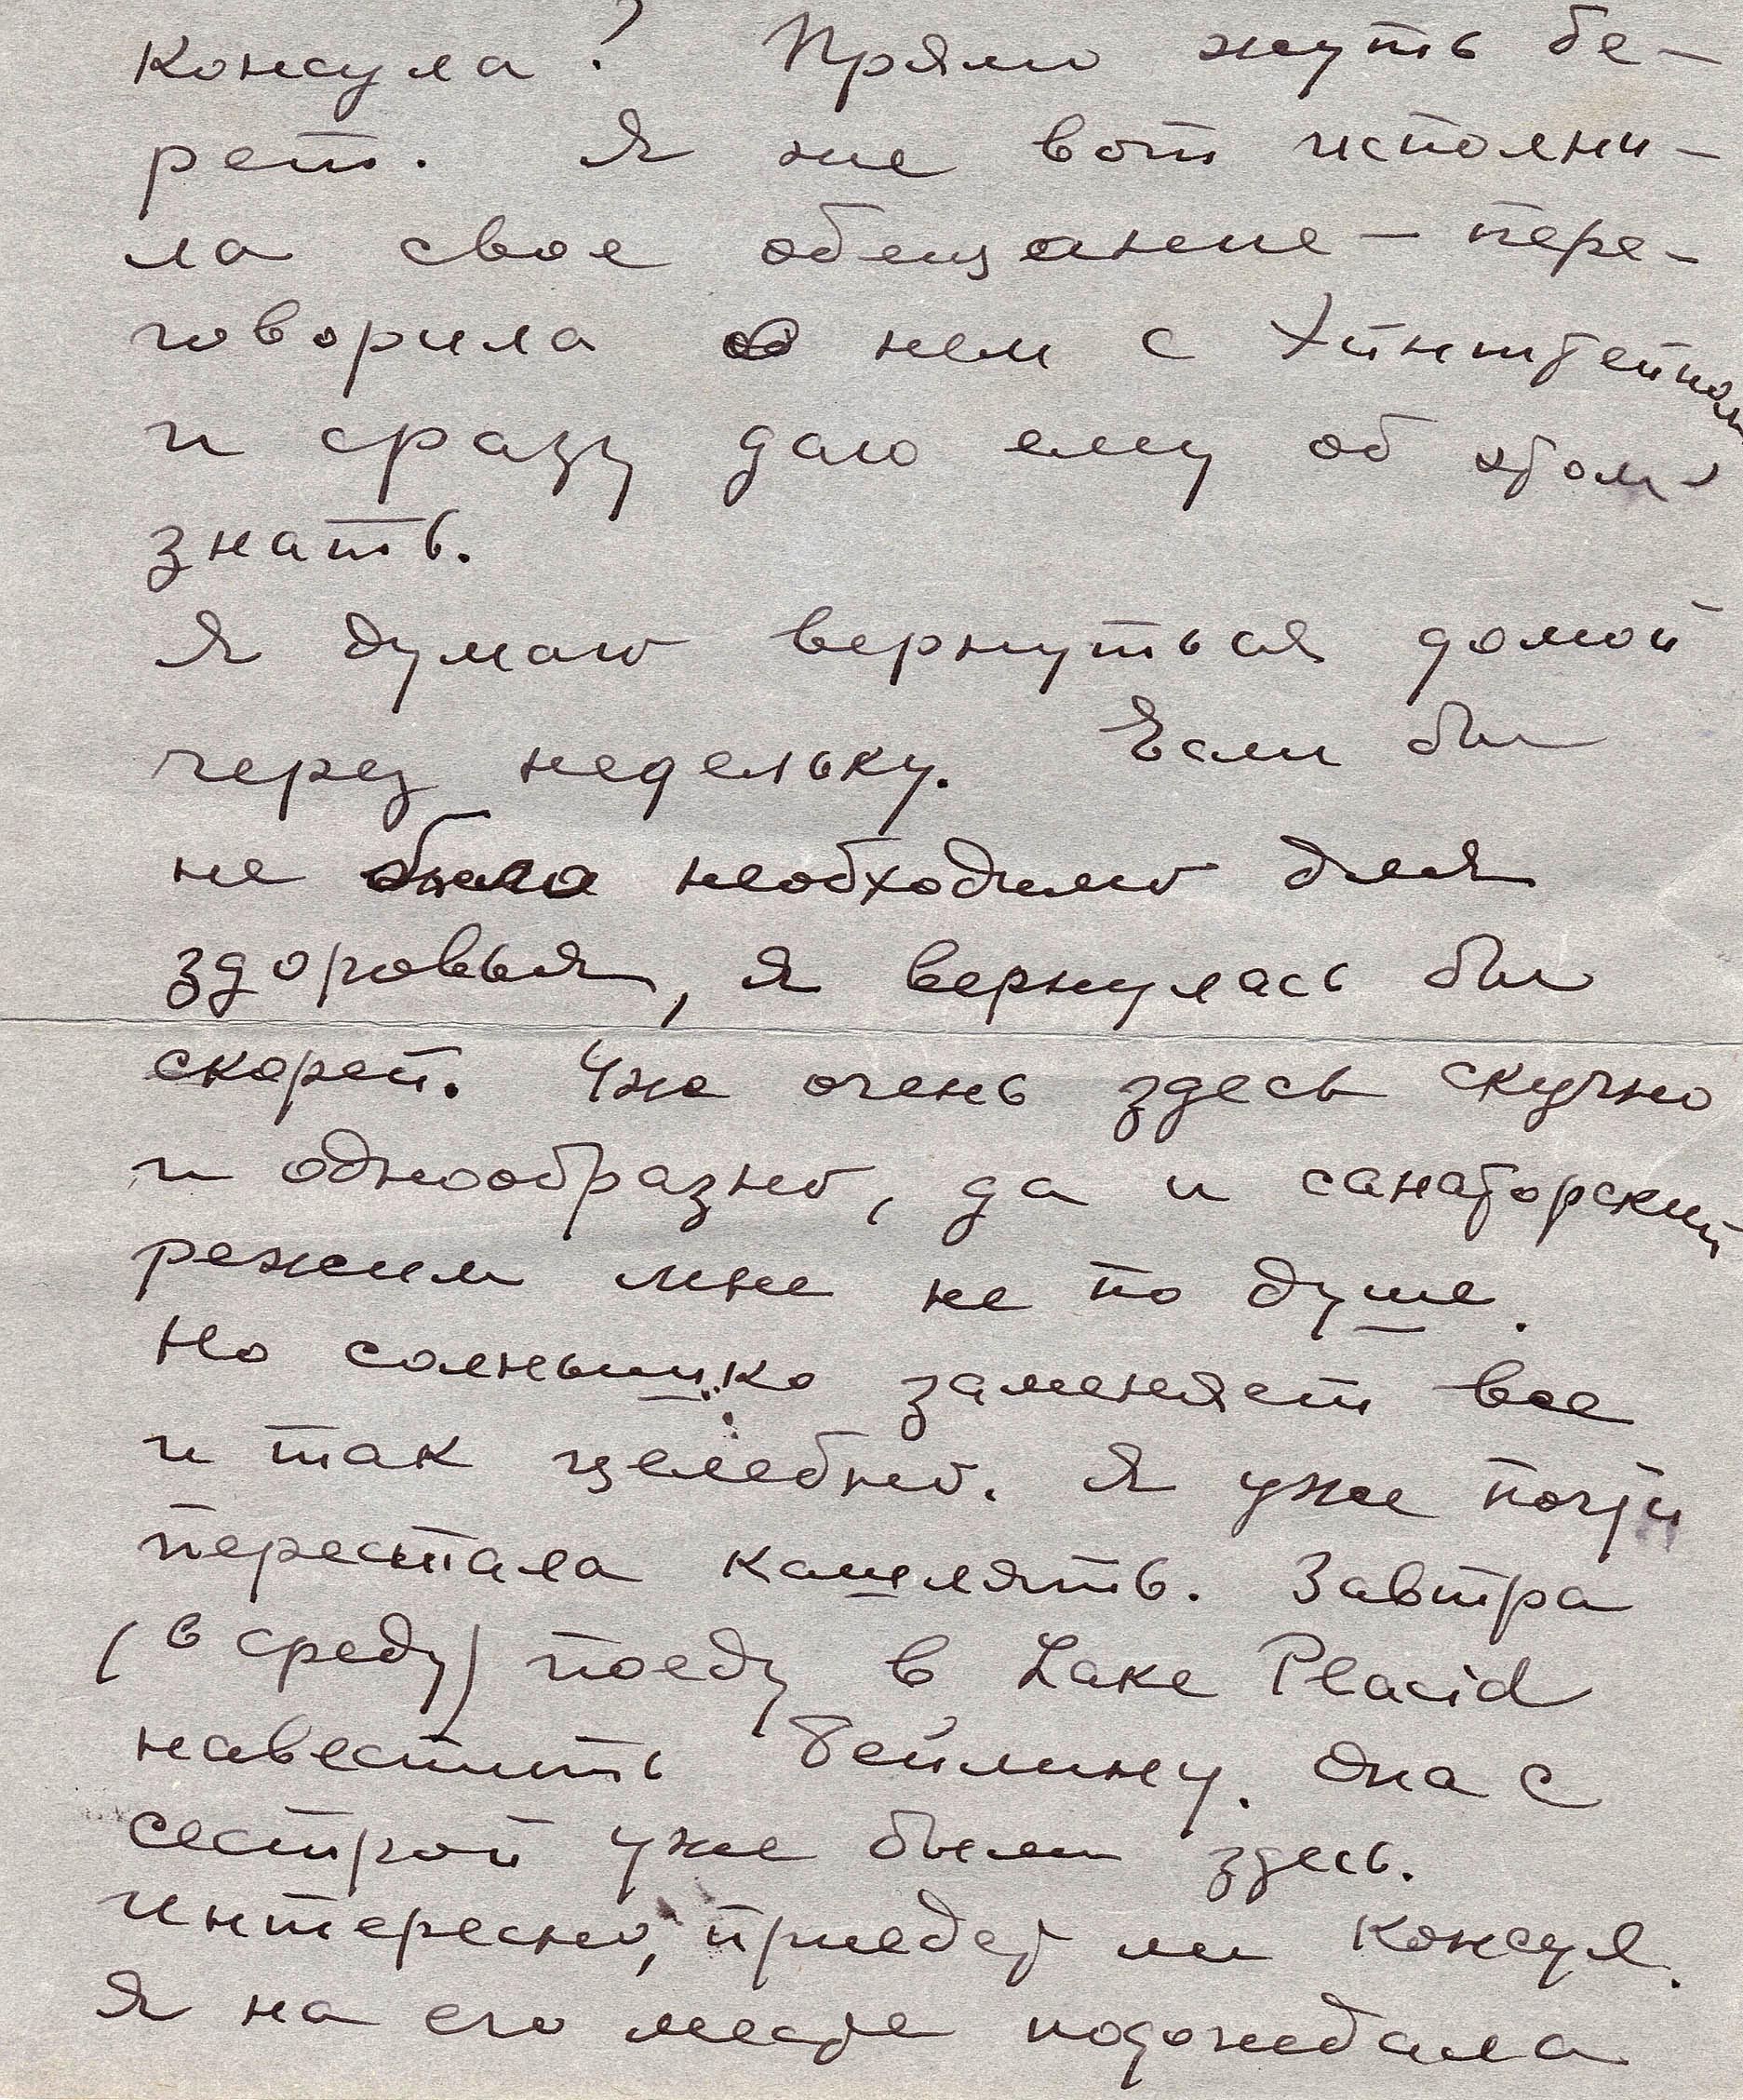 Консула? Прямо жуть бе-
рет. Я же вот исполни-
ла свое обещание – пере-
говорила о нем с Эйнштейном
и сразу даю ему об этом
знать.
Я думаю вернуться домой
через недельку. Если бы
не было необходимо для
здоровья, я вернулась бы
скорей. Уж очень здесь скучно
и однообразно, да и санаторский
режим мне не по душе.
Но солнышко заменяет все
и так целебно. Я уже почти
перестала кашлять. Завтра
(в среду) поеду в Lake Placid
навестить Бейлину. Она с
сестрой уже были здесь.
Интересно, приедет ли Консул.
Я на его месте подождала